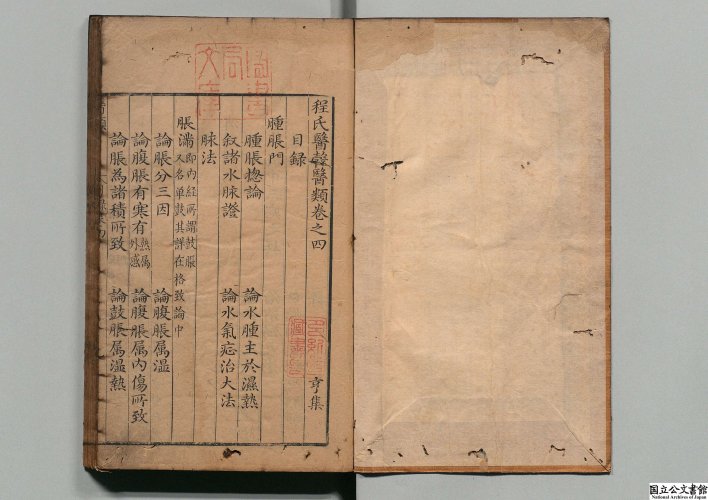 程氏醫彀醫類卷之四　亨集
目録
腫脹門
腫脹㧾論　論水腫主於濕熱
叙諸水脉證　論水氣㤀治大法
脉法
脹滿即内経所謂鼓脹又名單鼓其詳在格致論中
論脹分三因　論腹脹属温
論腹脹有寒有熱属外感　論腹脹属内傷所致
論脹為諸積所致　論鼓脹属温熱
国立公文書館
National Archives of Japan